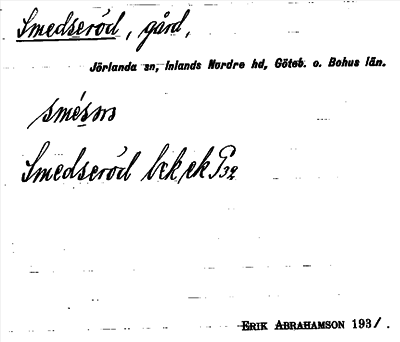 Smedseröd, gård,
Jörlanda sn, Inlands Nordre hd, Göteb. o. Bohus län.
Smedseröd
ERIK ABRAHAMSON 193/.